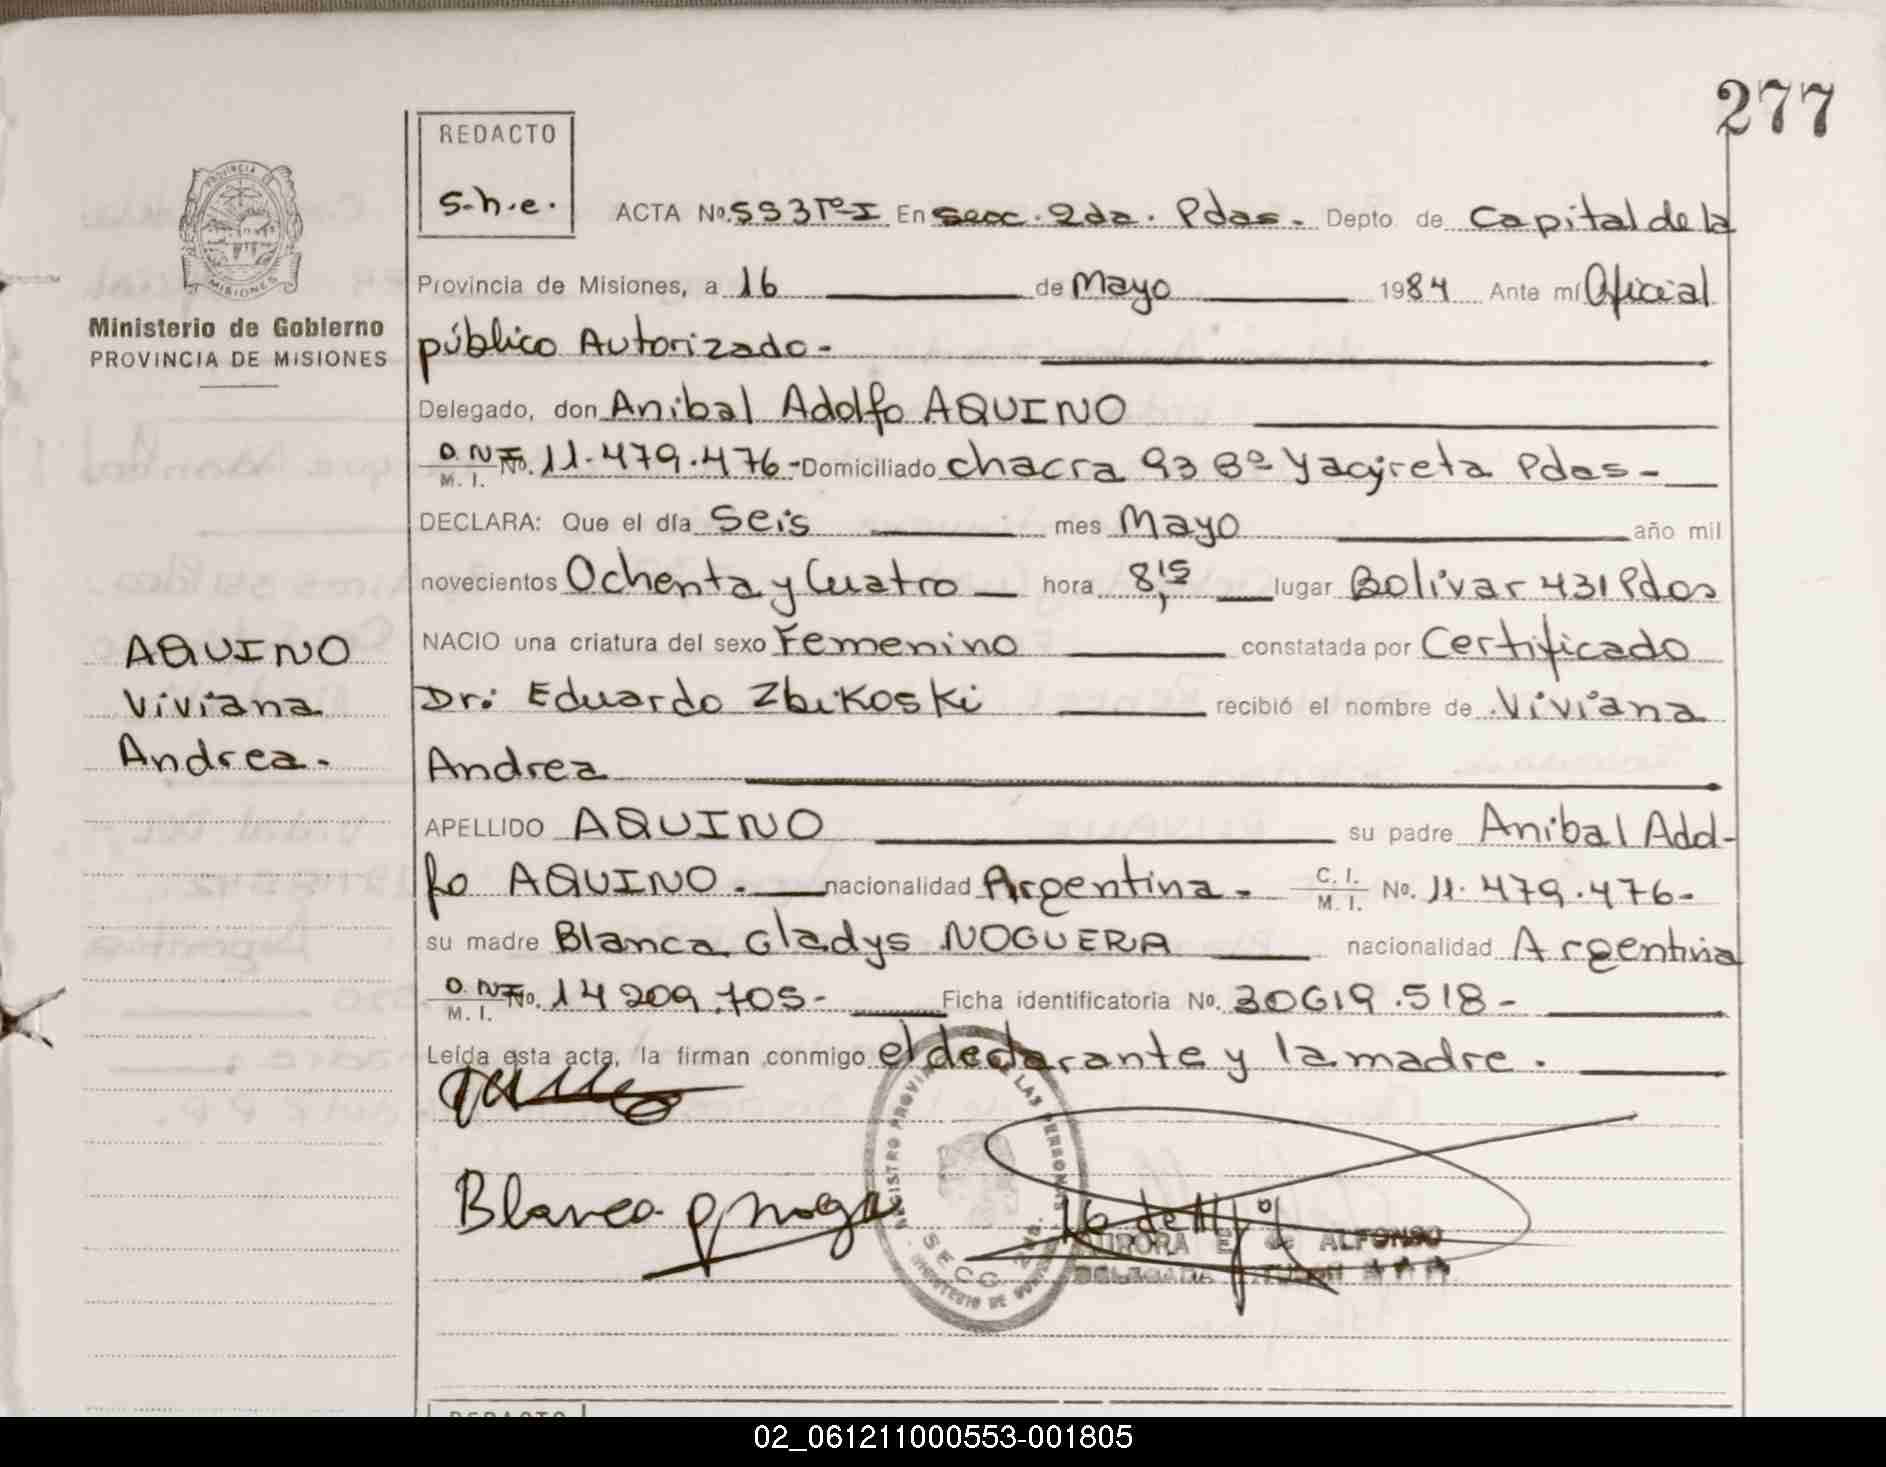 277
REDACTO
s.h.e.
ACTA No. 553 Tº-I En Secc. 2da. Pdas. Depto. de Capital de la
Provincia de Misiones, a 16 de Mayo 1984 Ante mí Oficial
público Autorizado-
Delegado, don Anibal Adolfo AQUINO
D.N.I. No. 11.479.476- Domiciliado chacra 93 Bº Yacyreta Pdas-
M. I.
DECLARA: Que el día Seis mes Mayo año mil
novecientos Ochenta y Cuatro hora 8,15 lugar Bolivar 431 Pdas
NACIO una criatura del sexo Femenino constatada por Certificado
Dr. Eduardo Zbikoski recibió el nombre de Viviana
Andrea
APELLIDO AQUINO su padre Anibal Adol-
fo AQUINO. nacionalidad Argentina- C. I. No. 11.479.476-
M. I.
su madre Blanca Gladys NOGUERA nacionalidad Argentina
D.N.I. No. 14 209.705- Ficha identificatoria No. 30619.518-
M. I.
Leída esta acta, la firman conmigo el declarante y la madre.
PROVINCIA DE MISIONES
Ministerio de Gobierno
PROVINCIA DE MISIONES
AQUINO
Viviana
Andrea.
Blanca
REGISTRO LAS PERSONAS
SECC.
AURORA E. de ALFONSO
DELEGADA
REDACTO
02_061211000553-001805